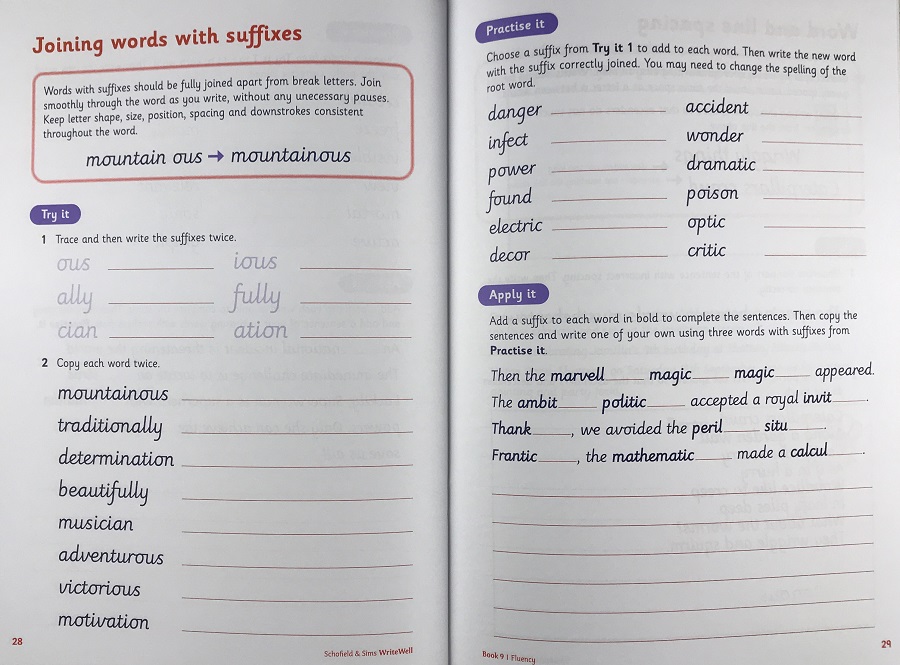 Joining words with suffixes
Words with suffixes should be fully joined apart from break letters. Join
smoothly through the word as you write, without any unecessary pauses.
Keep letter shape, size, position, spacing and downstrokes consistent
throughout the word.
mountain ous → mountainous
Try it
1 Trace and then write the suffixes twice.
ous ious
ally fully
cian ation
2 Copy each word twice.
mountainous
traditionally
determination
beautifully
musician
adventurous
victorious
motivation
28
Schofield & Sims WriteWell
Practise it
Choose a suffix from Try it 1 to add to each word. Then write the new word
with the suffix correctly joined. You may need to change the spelling of the
root word.
danger accident
infect wonder
power dramatic
found poison
electric optic
decor critic
Apply it
Add a suffix to each word in bold to complete the sentences. Then copy the
sentences and write one of your own using three words with suffixes from
Practise it.
Then the marvell_____ magic_____ magic_____ appeared.
The ambit_____ politic_____ accepted a royal invit_____.
Thank_____, we avoided the peril_____ situ_____.
Frantic_____, the mathematic_____ made a calcul_____.
Book 9 | Fluency
29